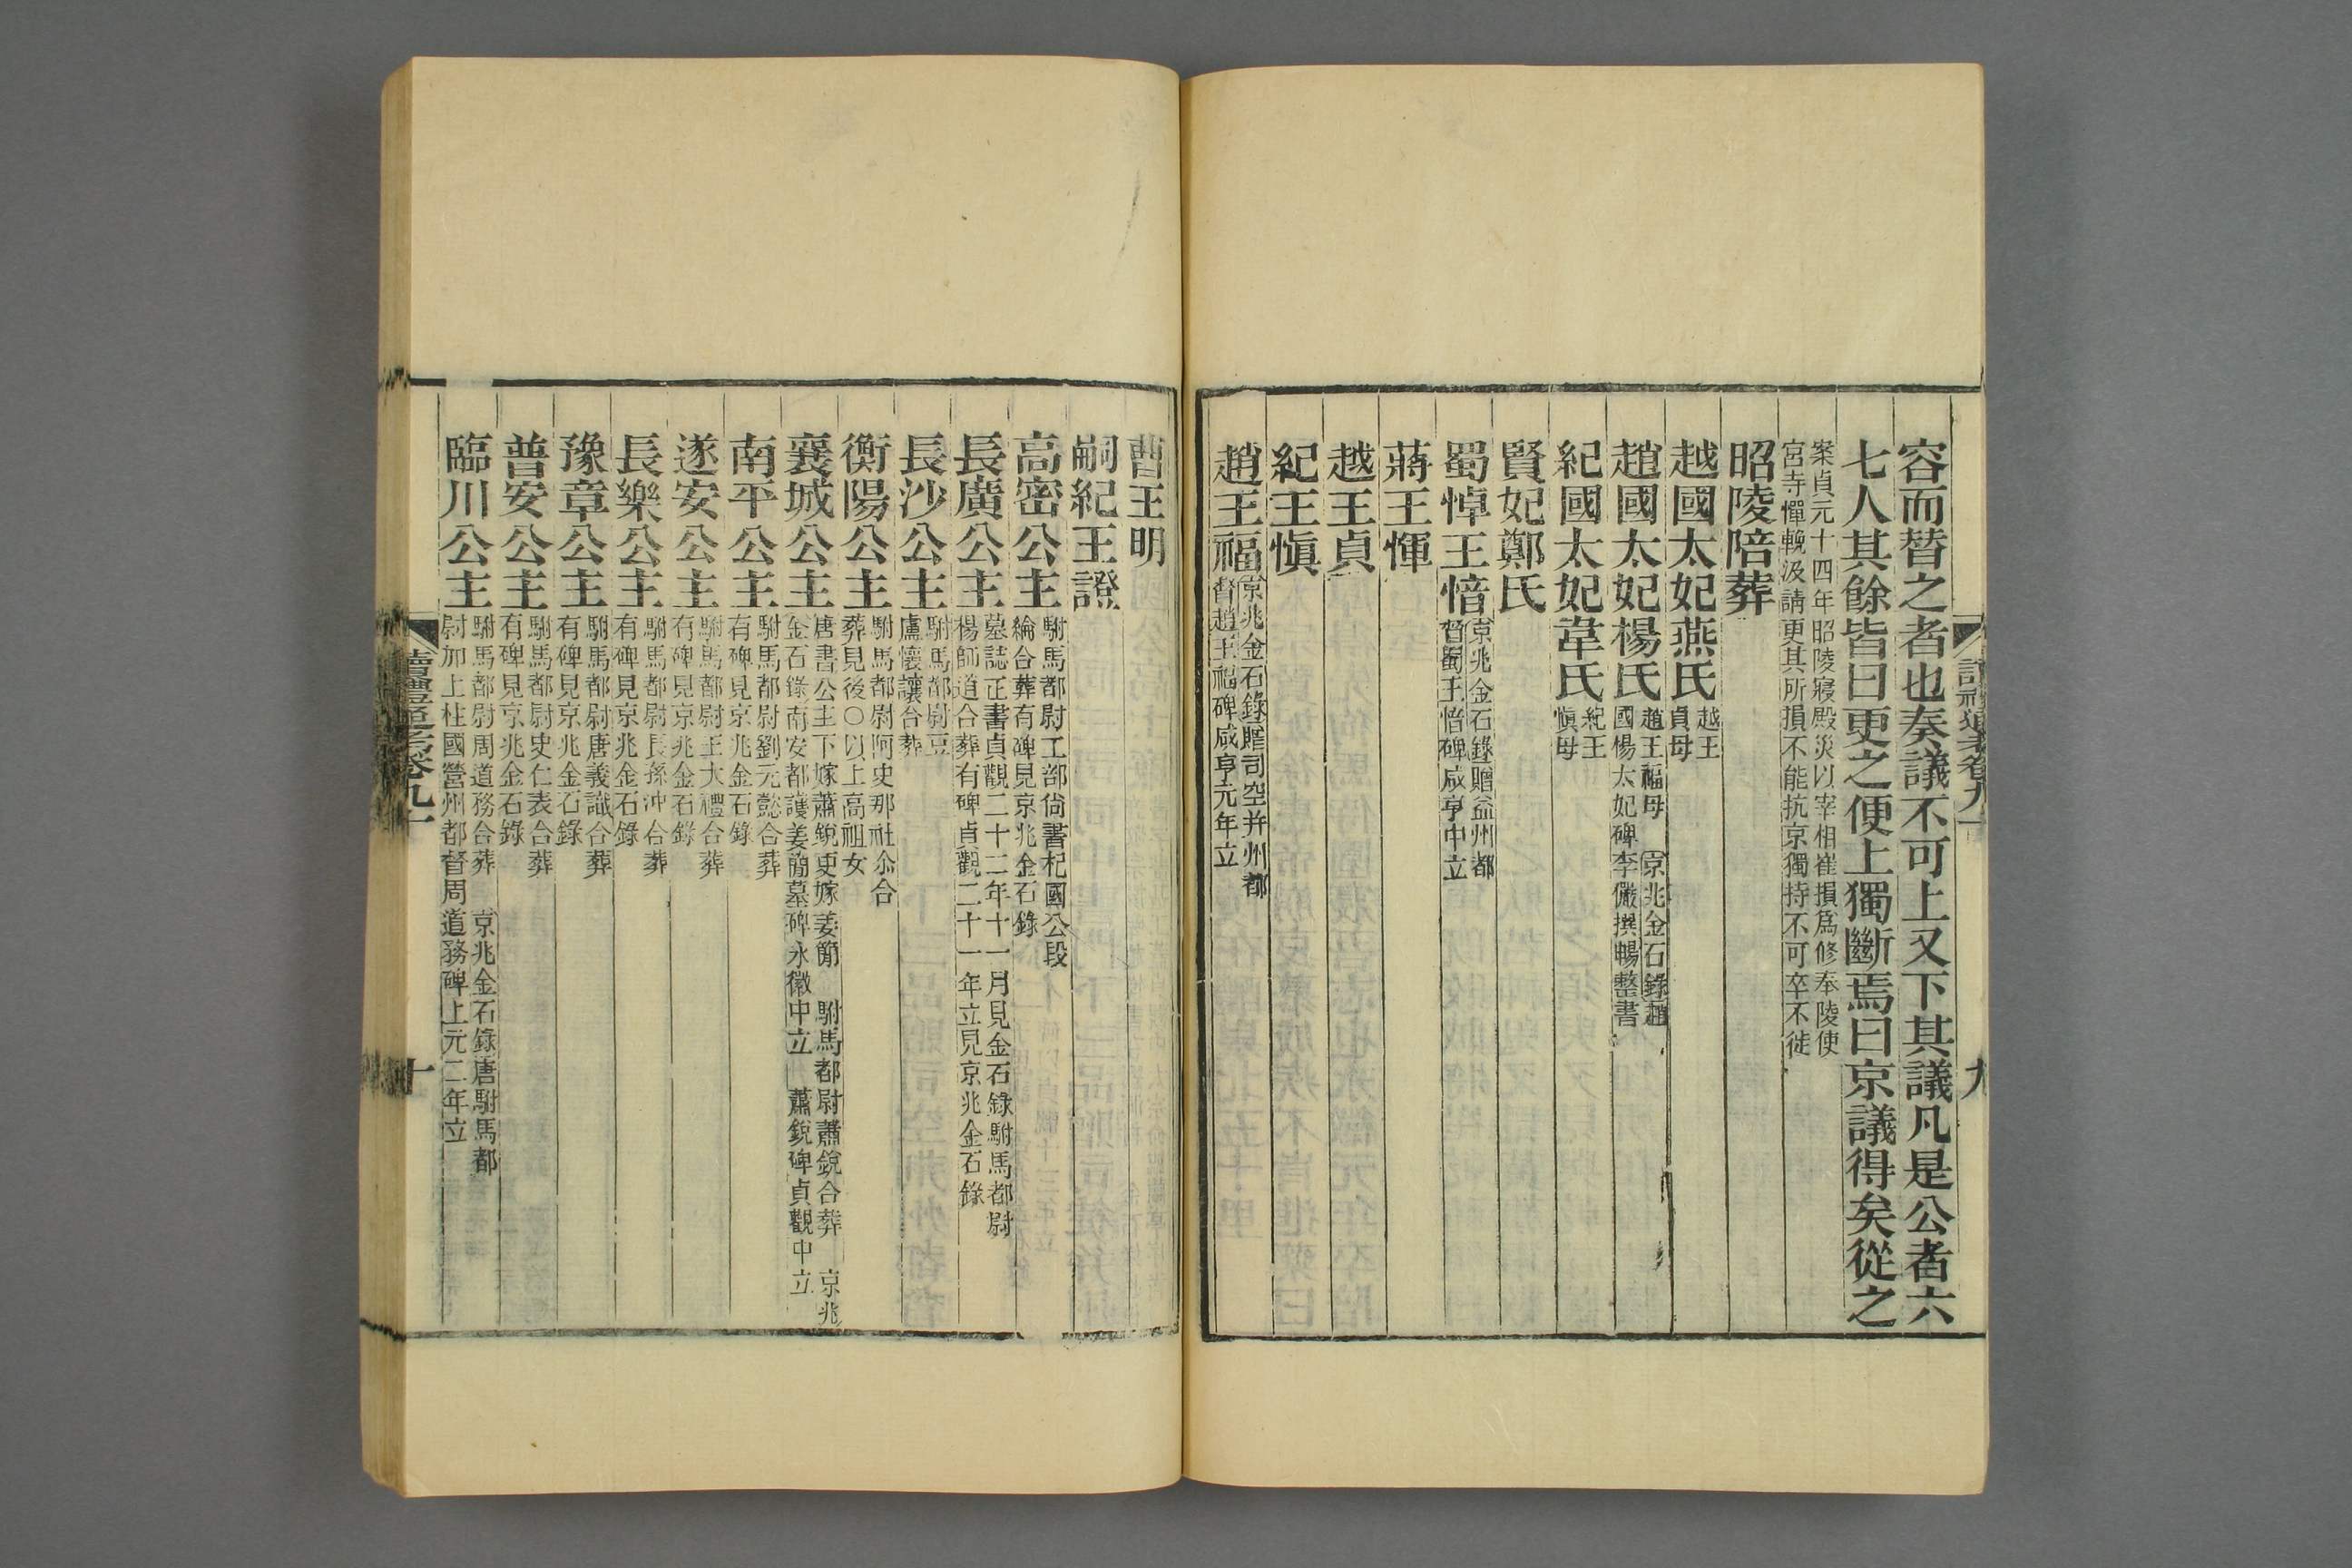 容而替之者也奏議不可上又下其議凡是公者六
七人其餘皆曰更之便上獨斷焉曰京議得矣從之
案貞元十四年昭陵寢殿災以宰相崔損爲修奉陵使
宮寺憚輓汲請更其所損不能抗京獨持不可卒不徙
昭陵陪葬
越國太妃燕氏越王
貞母
趙國太妃楊氏趙王福母 京兆金石錄趙
國楊太妃碑李儼撰暢整書
紀國太妃韋氏紀王
愼母
賢妃鄭氏
蜀悼王愔京兆金石錄贈益州都
督蜀王愔碑咸亨中立
蔣王惲
越王貞
紀王愼
趙王福京兆金石錄贈司空并州都
督趙王福碑咸亨元年立
讀禮通考卷九十
九
曹王明
嗣紀王證
高密公主駙馬都尉工部尙書杞國公段
綸合葬有碑見京兆金石錄
長廣公主墓誌正書貞觀二十二年十一月見金石錄駙馬都尉
楊師道合葬有碑貞觀二十一年立見京兆金石錄
長沙公主駙馬都尉豆
盧懷讓合葬
衡陽公主駙馬都尉阿史那社尒合
葬見後○以上高祖女
襄城公主唐書公主下嫁蕭銳更嫁姜簡 駙馬都尉蕭銳合葬 京兆
金石錄南安都護姜簡墓碑永徽中立 蕭銳碑貞觀中立
南平公主駙馬都尉劉元懿合葬
有碑見京兆金石錄
遂安公主駙馬都尉王大禮合葬
有碑見京兆金石錄
長樂公主駙馬都尉長孫沖合葬
有碑見京兆金石錄
豫章公主駙馬都尉唐義識合葬
有碑見京兆金石錄
普安公主駙馬都尉史仁表合葬
有碑見京兆金石錄
臨川公主駙馬都尉周道務合葬 京兆金石錄唐駙馬都
尉加上柱國營州都督周道務碑上元二年立
讀禮通考卷九十
十